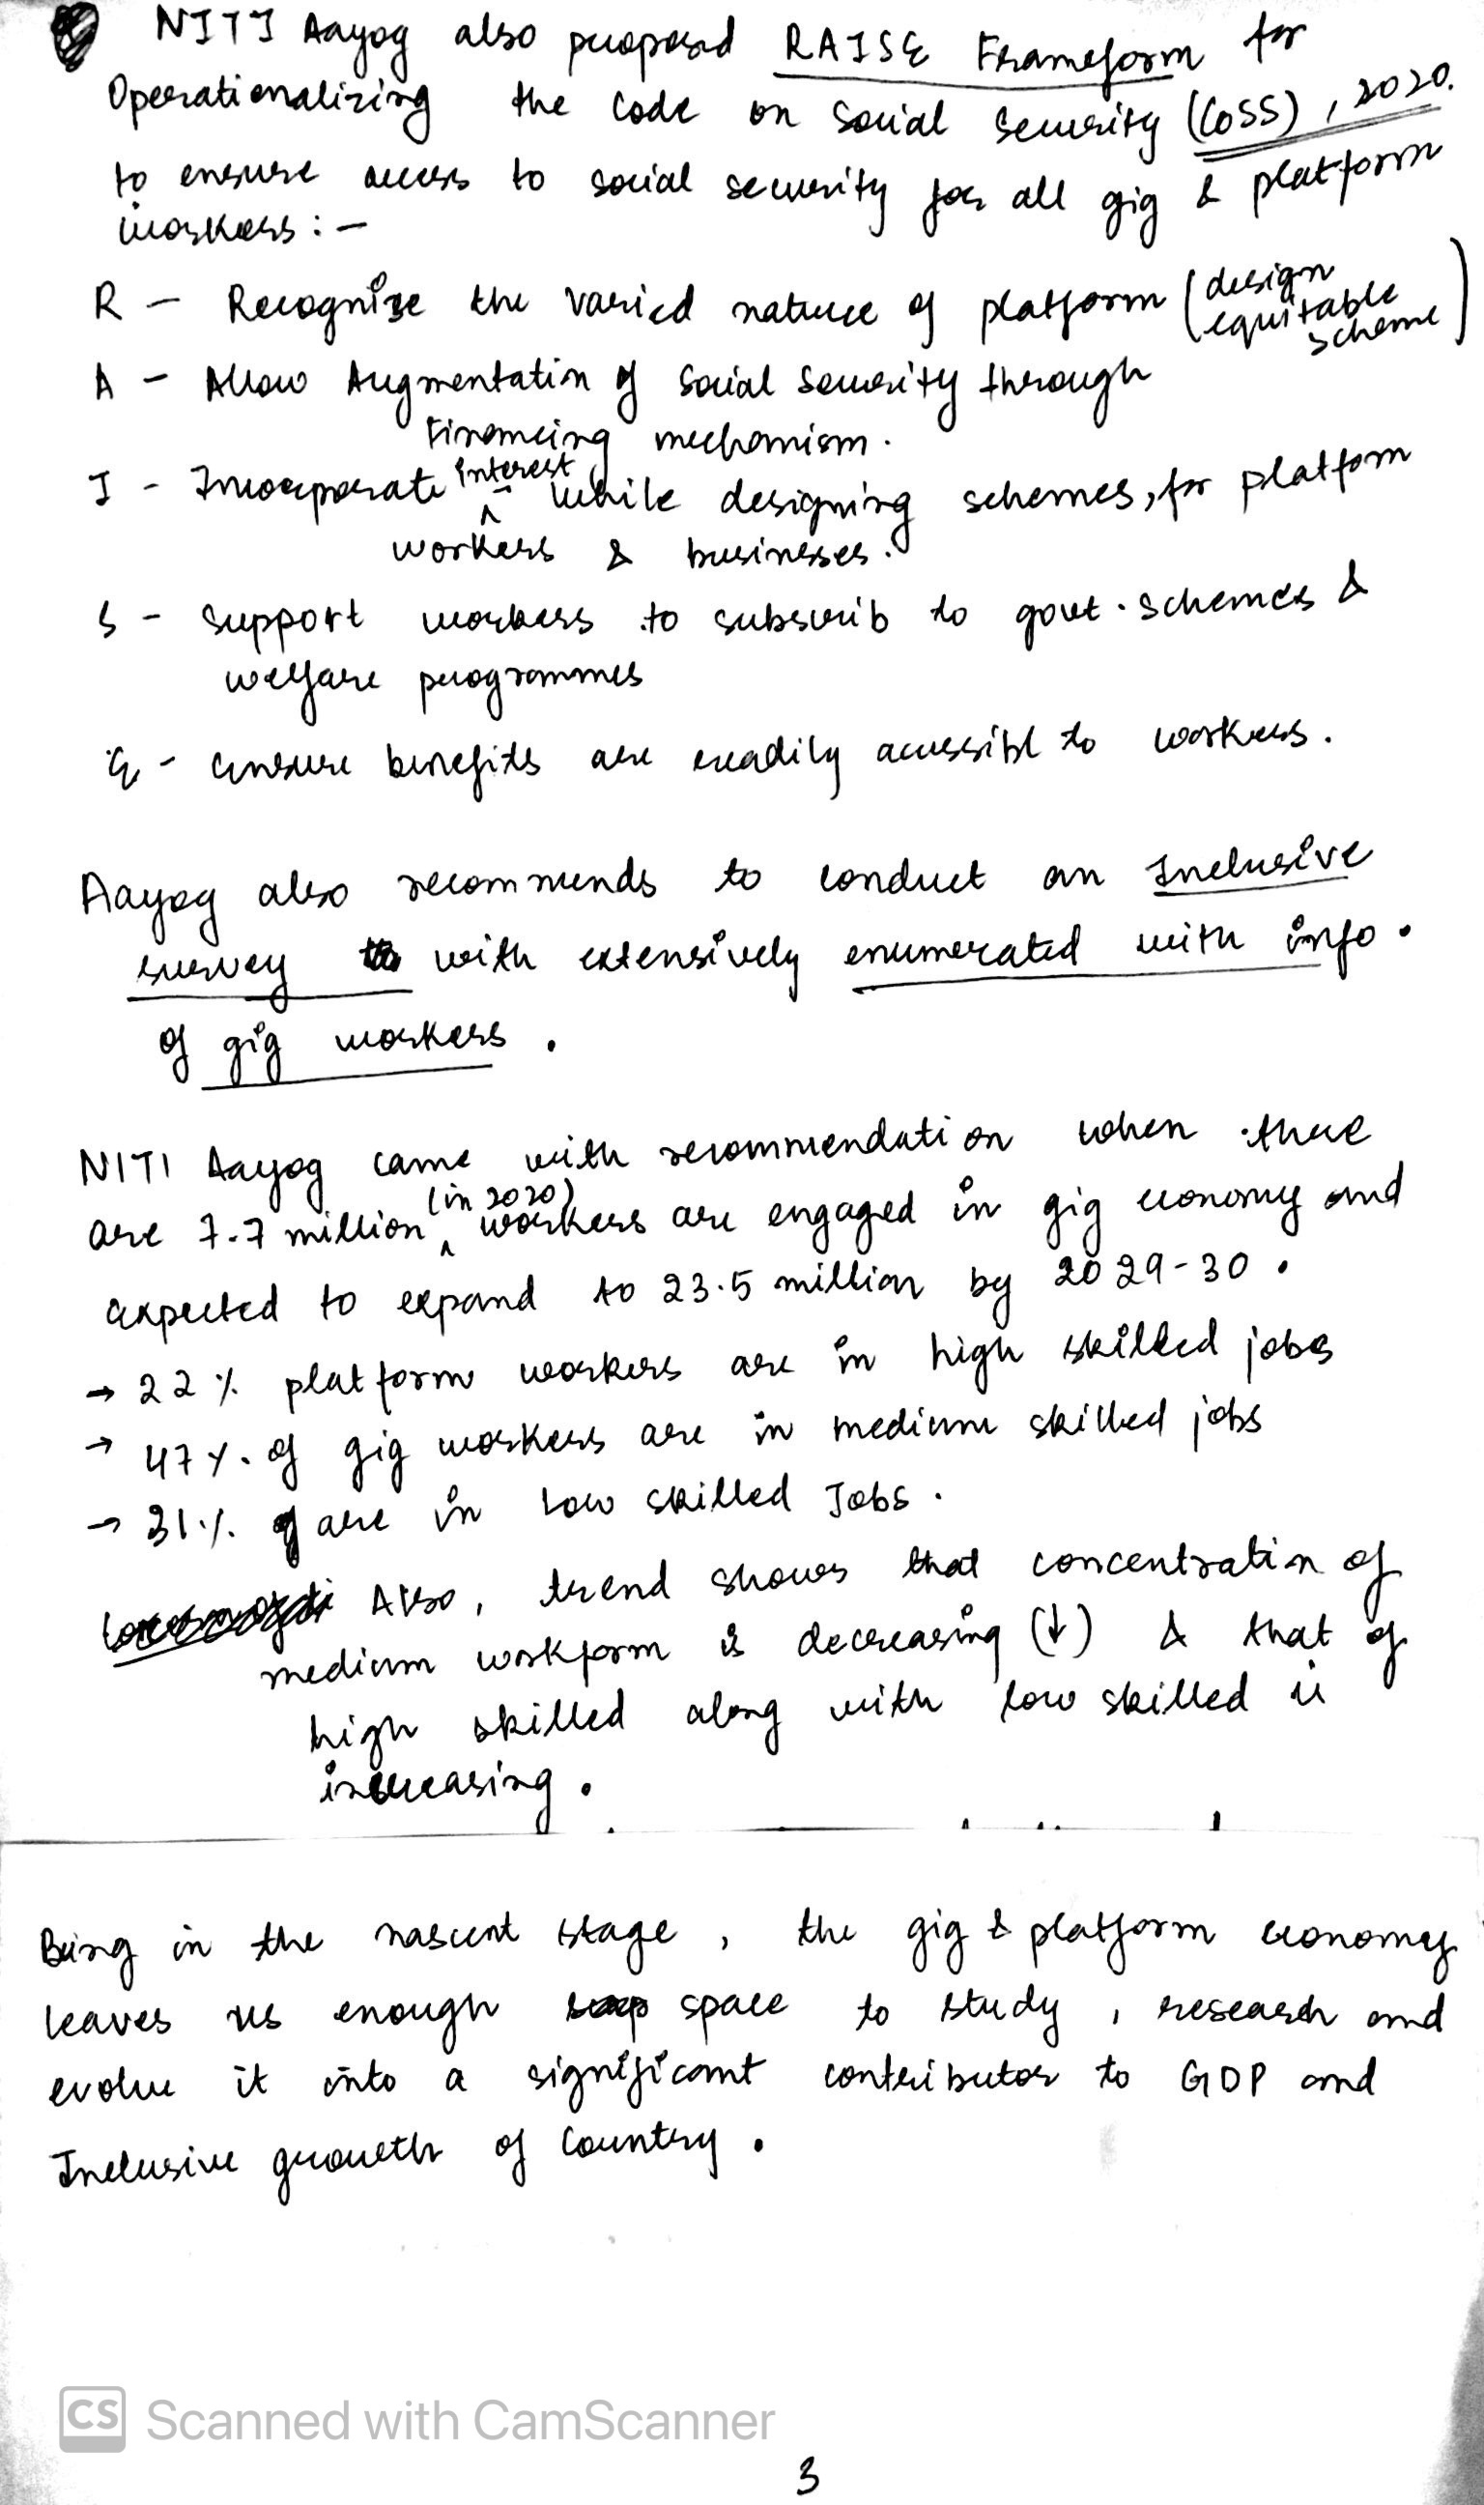 NITI Aayog also proposed RAISE Frameform for
Operationalizing the Code on Social Security (CoSS), 2020.
to ensure access to social security for all gig & platform
workers : -
R - Recognize the varied nature of platform (design equitable scheme)
A - Allow Augmentation of Social Security through
Financing mechanism.
I - Incorporate interest while designing schemes, for platform
workers & businesses.
S - Support workers to subscrib to govt. schemes &
welfare programmes
E - Ensure benefits are readily accessibl to workers.
Aayog also recommends to conduct an Inclusive
survey with extensively enumerated with info.
of gig workers.
NITI Aayog came with recommendation when there
are 7.7 million (in 2020) workers are engaged in gig economy and
expected to expand to 23.5 million by 2029-30.
→ 22% platform workers are in high skilled jobs
→ 47% of gig workers are in medium skilled jobs
→ 31% are in Low skilled Jobs.
Also, trend shows that concentration of
medium workform is decreasing (↓) & that of
high skilled along with low skilled is
increasing.
Being in the nascent stage, the gig & platform economy
leaves us enough space to study, research and
evolve it into a significant contributor to GDP and
Inclusive growth of Country.
CS Scanned with CamScanner
3